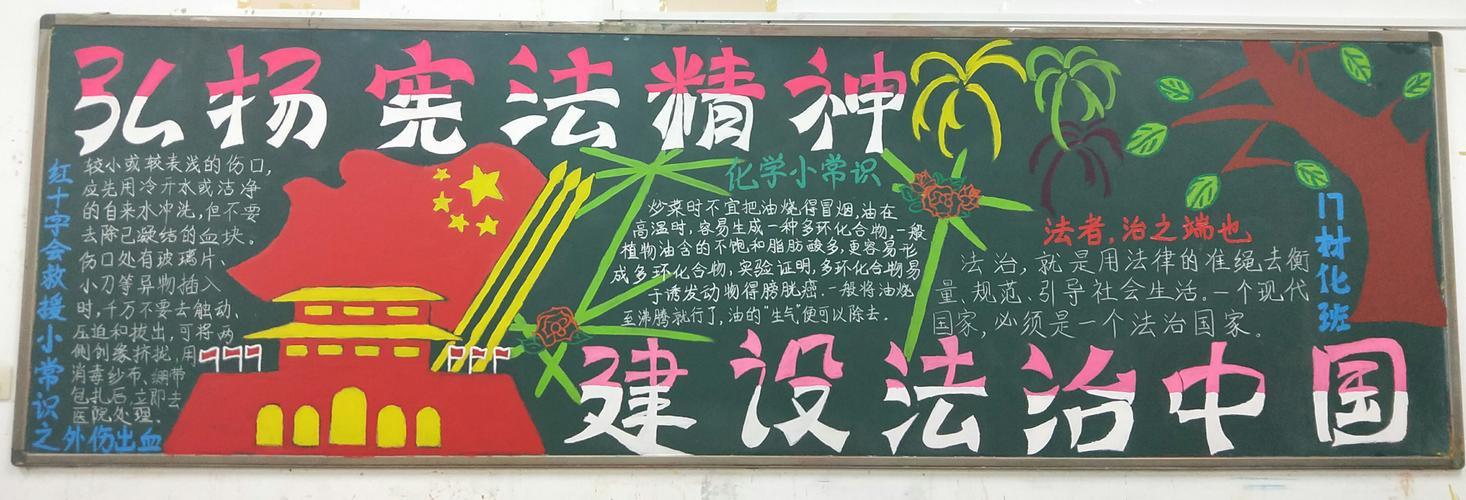 弘扬宪法精神
红十字会救援小常识
之外伤出血
较小或较表浅的伤口,
应先用冷开水或洁净
的自来水冲洗,但不要
去除已凝结的血块。
伤口处有玻璃片、
小刀等异物插入
时,千万不要去触动、
压迫和拔出,可将两
侧创缘挤拢,用
消毒纱布、绷带
包扎后,立即去
医院处理.
化学小常识
炒菜时不宜把油烧得冒烟,油在
高温时,容易生成一种多环化合物,一般
植物油含的不饱和脂肪酸多,更容易形
成多环化合物,实验证明,多环化合物易
于诱发动物得膀胱癌.一般将油烧
至沸腾就行了,油的“生气”便可以除去.
法者,治之端也
法治,就是用法律的准绳去衡
量、规范、引导社会生活。一个现代
国家,必须是一个法治国家。
门材化班
建设法治中国